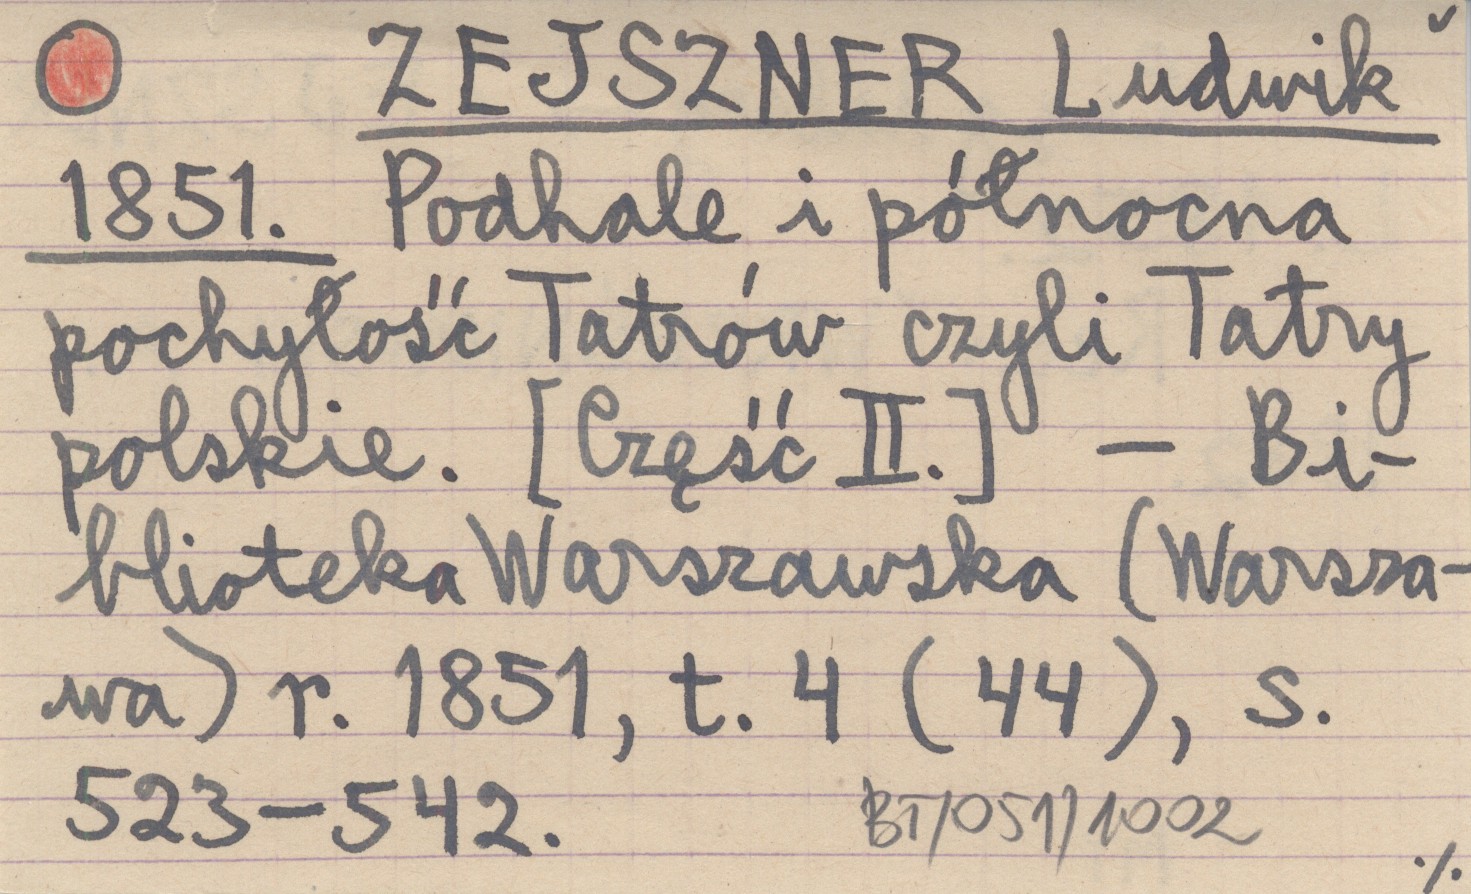 ZEJSZNER Ludwik
1851. Podhale i północna
pochyłość Tatrów czyli Tatry
polskie. [Część II.] — Bi-
blioteka Warszawska (Warsza-
wa) r. 1851, t. 4 (44), s.
523–542.
BT/051/1002
./.